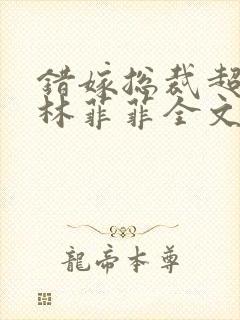 错嫁总裁超
林菲菲全文
龍帝本尊